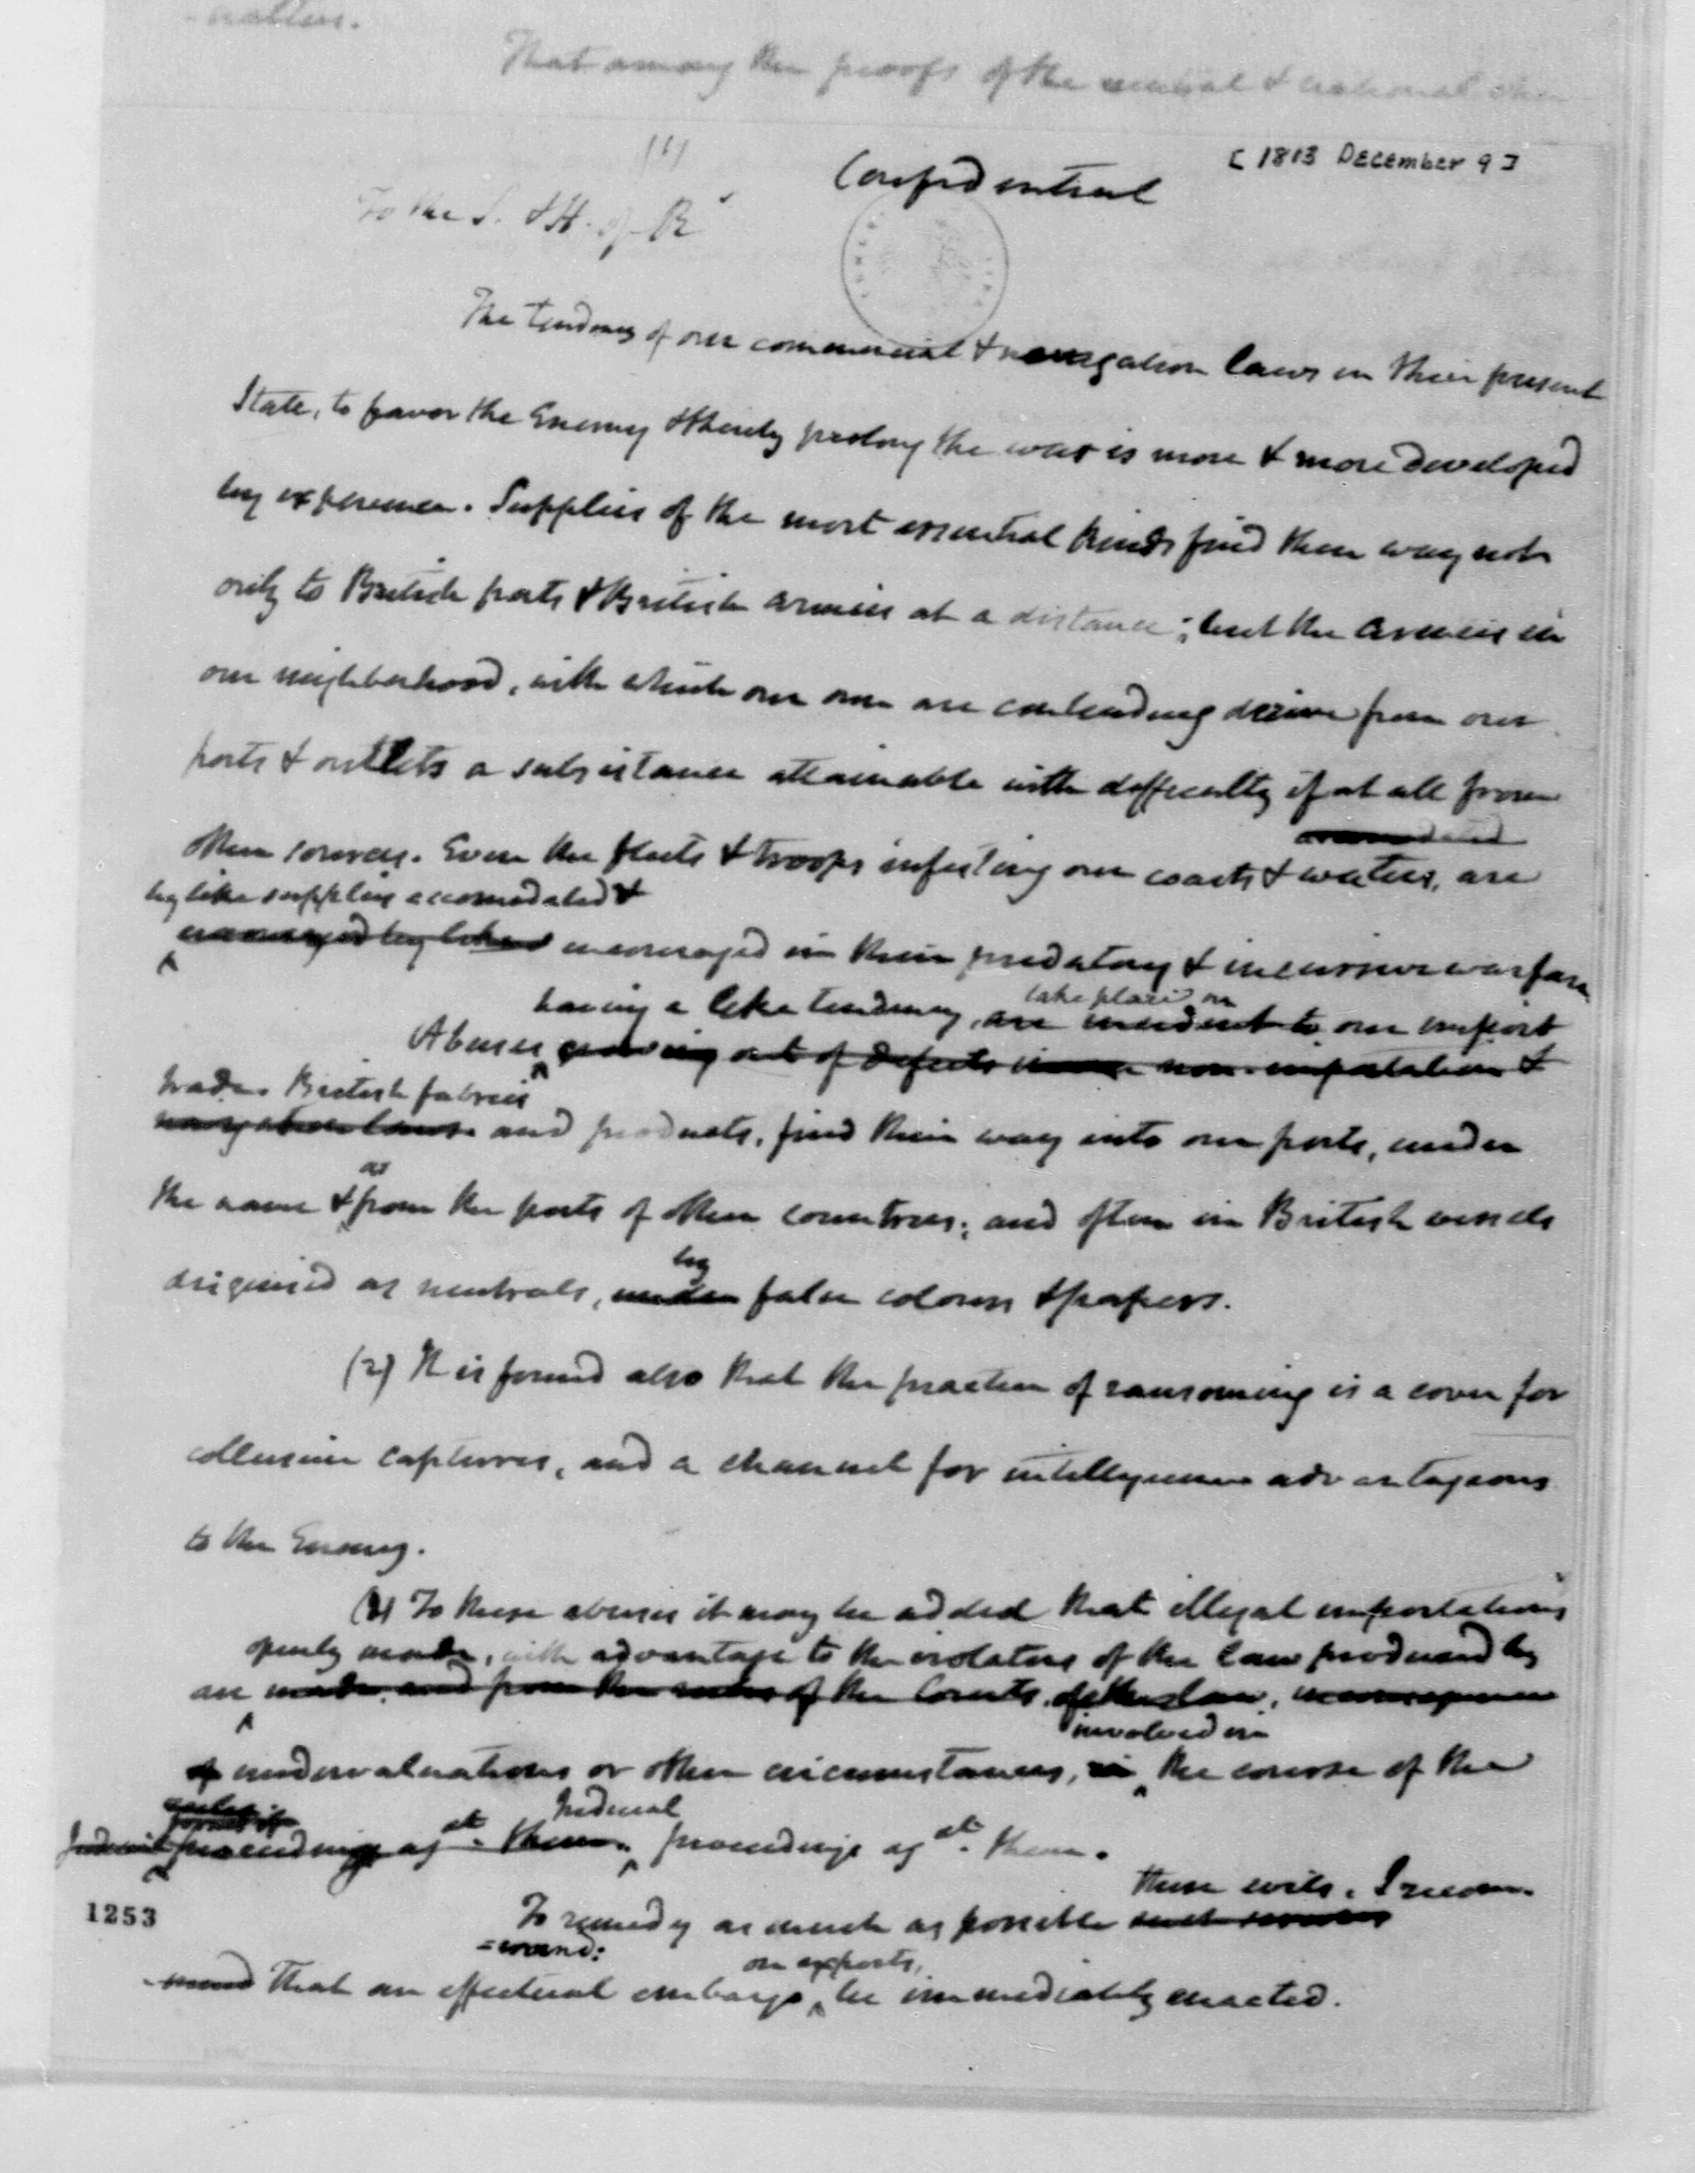 That among the proofs of the neutral & national
(1)
Confidential
[1813 December 9]
To the S. & H. of R
The tendency of our commercial & navigation laws in their present
State, to favor the Enemy & thereby prolong the war is more & more developed
by experience. Supplies of the most essential kinds find their way not
only to British ports & British armies at a distance; but the armies in
our neighborhood, with which our own are contending derive from our
ports & outlets a subsistance attainable with difficulty if at all from
accomodated
other sources. Even the fleets & troops infesting our coasts & waters, are
by like supplies accomodated &
encouraged by like encouraged in their predatory & incursive warfare
having a like tendency, take place on
are incident to our import
Abuses growing out of defects in our non-importation &
trade. British fabrics
navigation laws and products, find their way into our ports, under
as
the name & from the ports of other countries; and often in British vessels
disguised as neutrals, under false colours & papers.
by
(2) It is found also that the practice of ransoming is a cover for
collusive captures, and a channel for intelligence advantageous
to the Enemy.
(3) To these abuses it may be added that illegal importations
openly made, with advantage to the violators of the law produced by
are made, and from the rules of the Courts of the law,
involved in
of undervaluations or other circumstances, in the course of the
Judicial
proceedings agst. them. proceedings agst. them.
these evils, I recom-
1253
To remedy as much as possible such
=mend:
on exports,
-mend That an effectual embargo be immediately enacted.